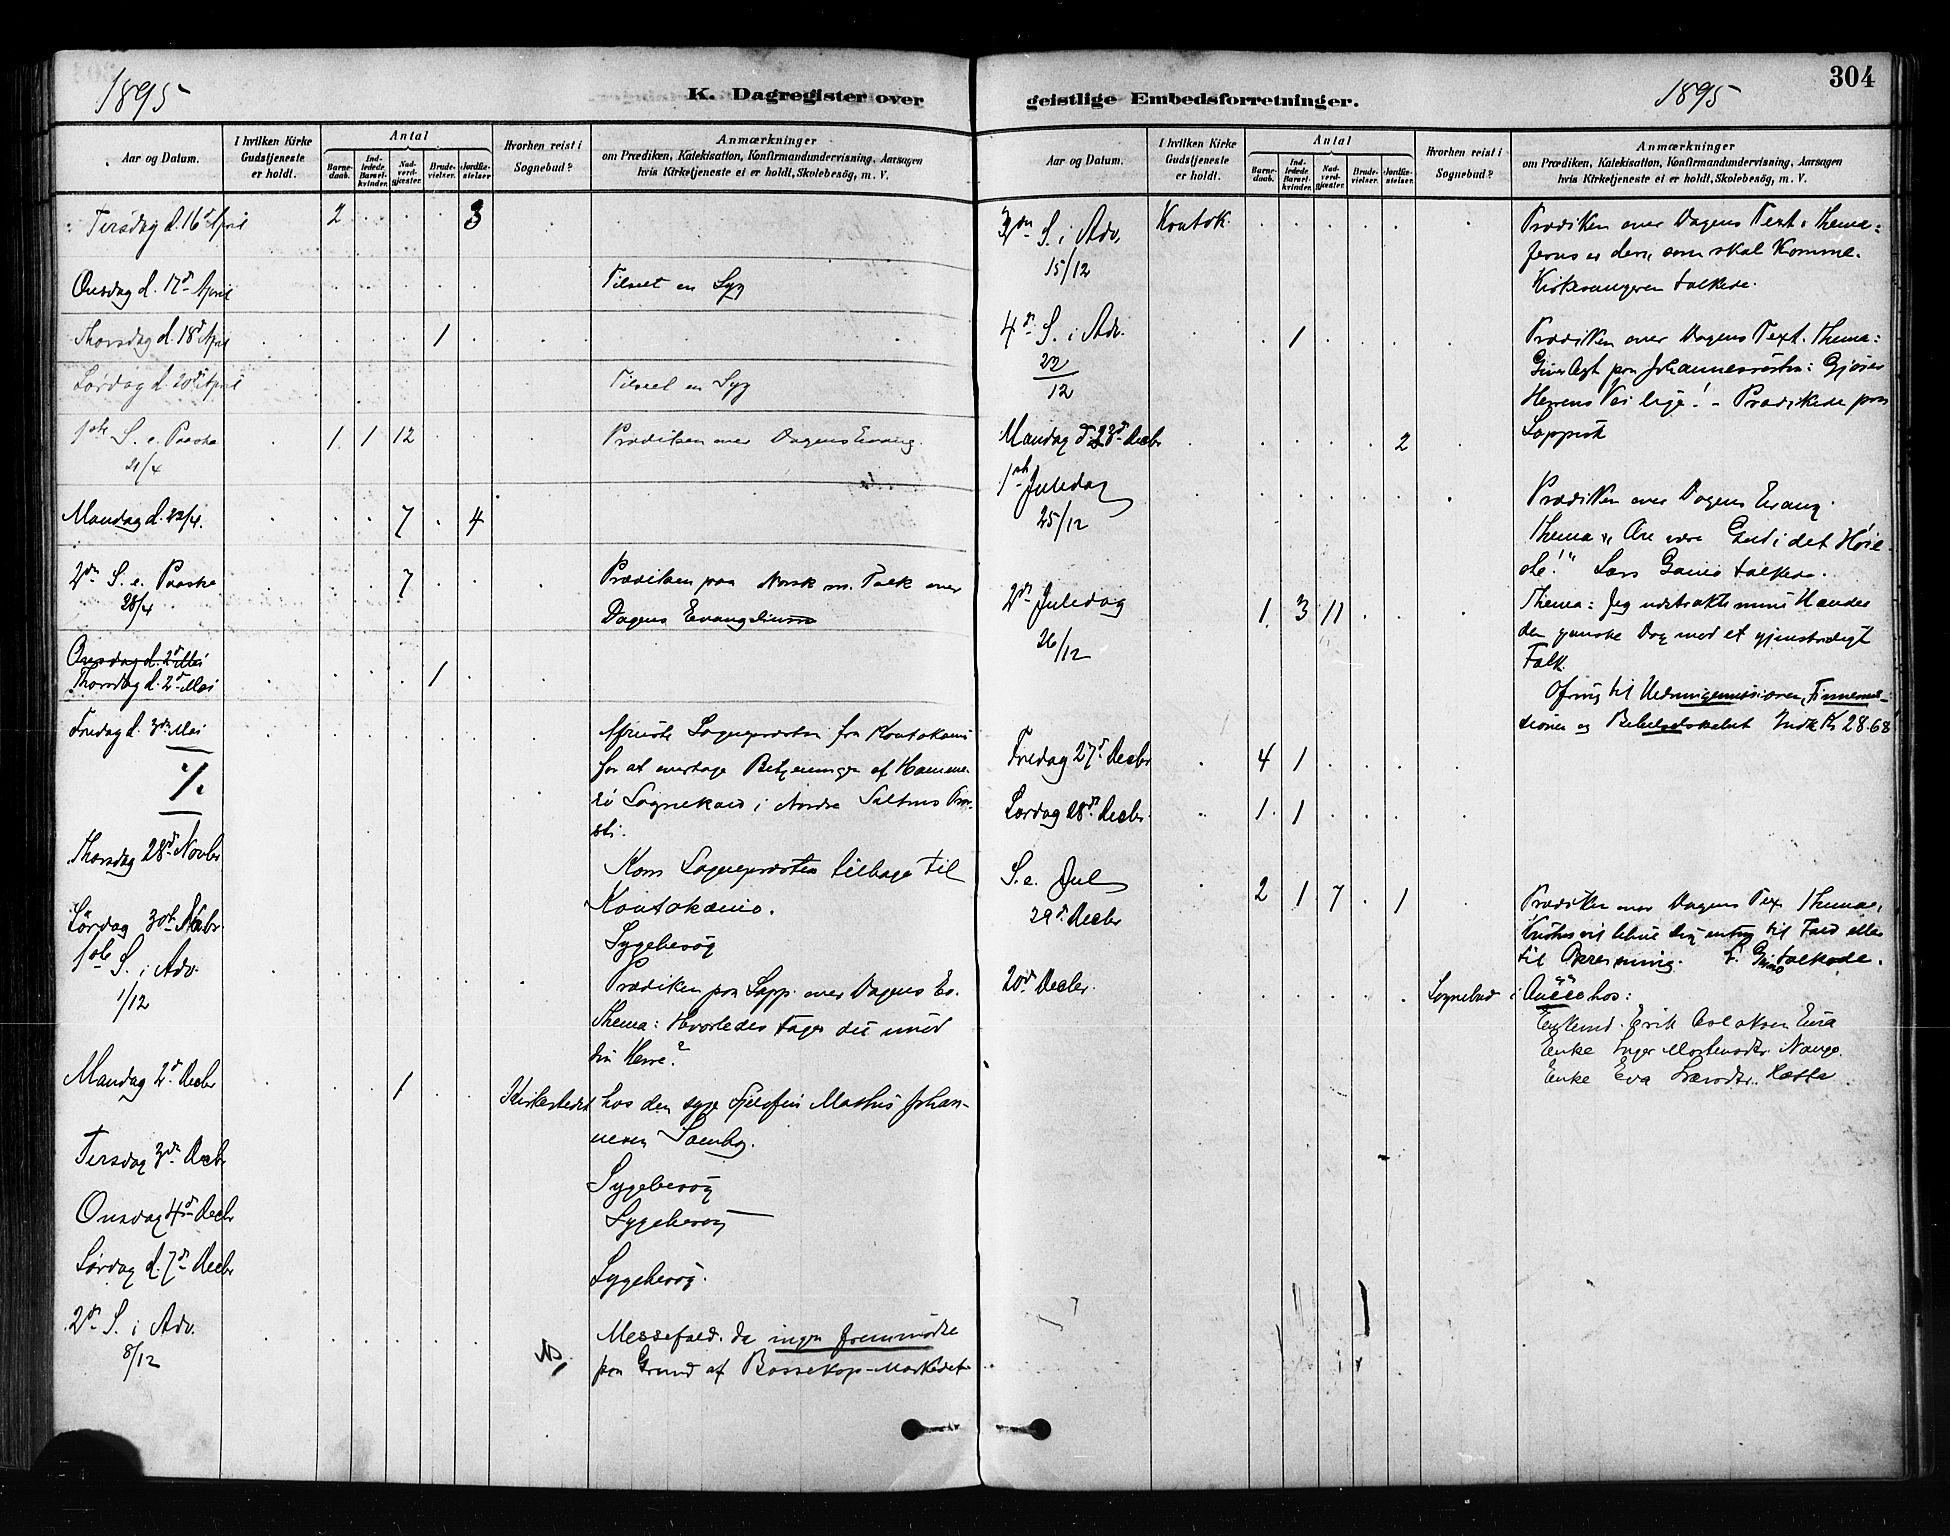 1895
K. Dagregister over
Aar og Datum.
I hvilken Kirke Gudstjeneste er holdt.
Antal
Barnedaab.
Indledede Barselkvinder.
Nadverdgjæster.
Brudevielser.
Jordfæstelser.
Hvorhen reist i Sognebud?
Anmærkninger
om Prædiken, Katekisation, Konfirmandundervisning, Aarsagen
hvis Kirketjeneste ei er holdt, Skolebesög, m. V.
Tirsdag d. 16d April 2 3
Onsdag d. 17d April Tilseet en Syg
Thorsdag d. 18d April 1
Lördag d. 20d April Tilseet en Syg
1ste S. e. Paaske 1 1 12 Prædiken over Dagens Evang.
21/4
Mandag d. 22/4. 7 4
2den S. e. Paaske 7 Prædiken paa Norsk m. Tolk over
28/4 Dagens Evangelium
Onsdag d. 2d Mai
Thorsdag d. 2d Mai 1
Fredag d. 3die Mai Afreiste Sognepræsten fra Koutokeino
for at overtage Betjeningen af Hamme-
rö Sognekald i Nordre Saltens Prov-
sti.
Thorsdag 28d Novbr Kom Sognepræsten tilbage til
Koutokæino.
Lördag 30te Novbr Sygebesög
1ste S. i Adv. Prædiken paa Lapp. over Dagens Ev.
1/12 Thema: Hvorledes tages du imod
din Herre?
Mandag 2d Decbr 1 Kirkestedet hos den syge Fjeldfin Mathis Johan-
nesen
Tirsdag 3die Decbr Sygebesög
Onsdag 4d Decbr Sygebesög
Lördag d. 7d Decbr Sygebesög.
2d S. i Adv. Messefald, da ingen fremmödte
8/12 paa Grund af Bossekop-Markedet
304
1895
geistlige Embedsforretninger.
Aar og Datum.
I hvilken Kirke Gudstjeneste er holdt.
Antal
Barnedaab.
Indledede Barselkvinder.
Nadverdgjæster.
Brudevielser.
Jordfæstelser.
Hvorhen reist i Sognebud?
Anmærkninger
om Prædiken, Katekisation, Konfirmandundervisning, Aarsagen
hvis Kirketjeneste ei er holdt, Skolebesög, m. V.
S. i Adv. Koutok. Prædiken over Dagens Text. Thema:
15/12 Jesus er den, som skal komme.
Kirkesangeren tolkede.
4d S. i Adv. 1 Prædiken over Dagens Text. Thema:
22/12 Giver Agt paa Johannesrösten: Gjörer
Herrens Vei lige! - Prædikede paa
Lappisk
Mandag d 23d Decbr 2
1ste Juledag Prædiken over Dagens Evang.
25/12 Thema "Ære være Gud i det Höie-
ste!" Lars tolkede.
2d Juledag 1 3 11 Thema: Jeg udstrakte mine Hænder
26/12 den ganske Dag mod et gjenstridigt
Folk.
Ofring til Hedningemissionen, Finnemis-
sionen og Bibelselskabet Indk Kr 28.68
Fredag 27d Decbr 4 1
Lördag 28d Decbr. 1 1
S. e. Jul 2 1 7 1 Prædiken over Dagens Text Thema:
29d Decbr til Fald eller
til Opreisning. tolkede.
20d Decbr. Sognebud i hos:
Erik
Enke Inger Mortensdtr.
Enke Eva Hætta